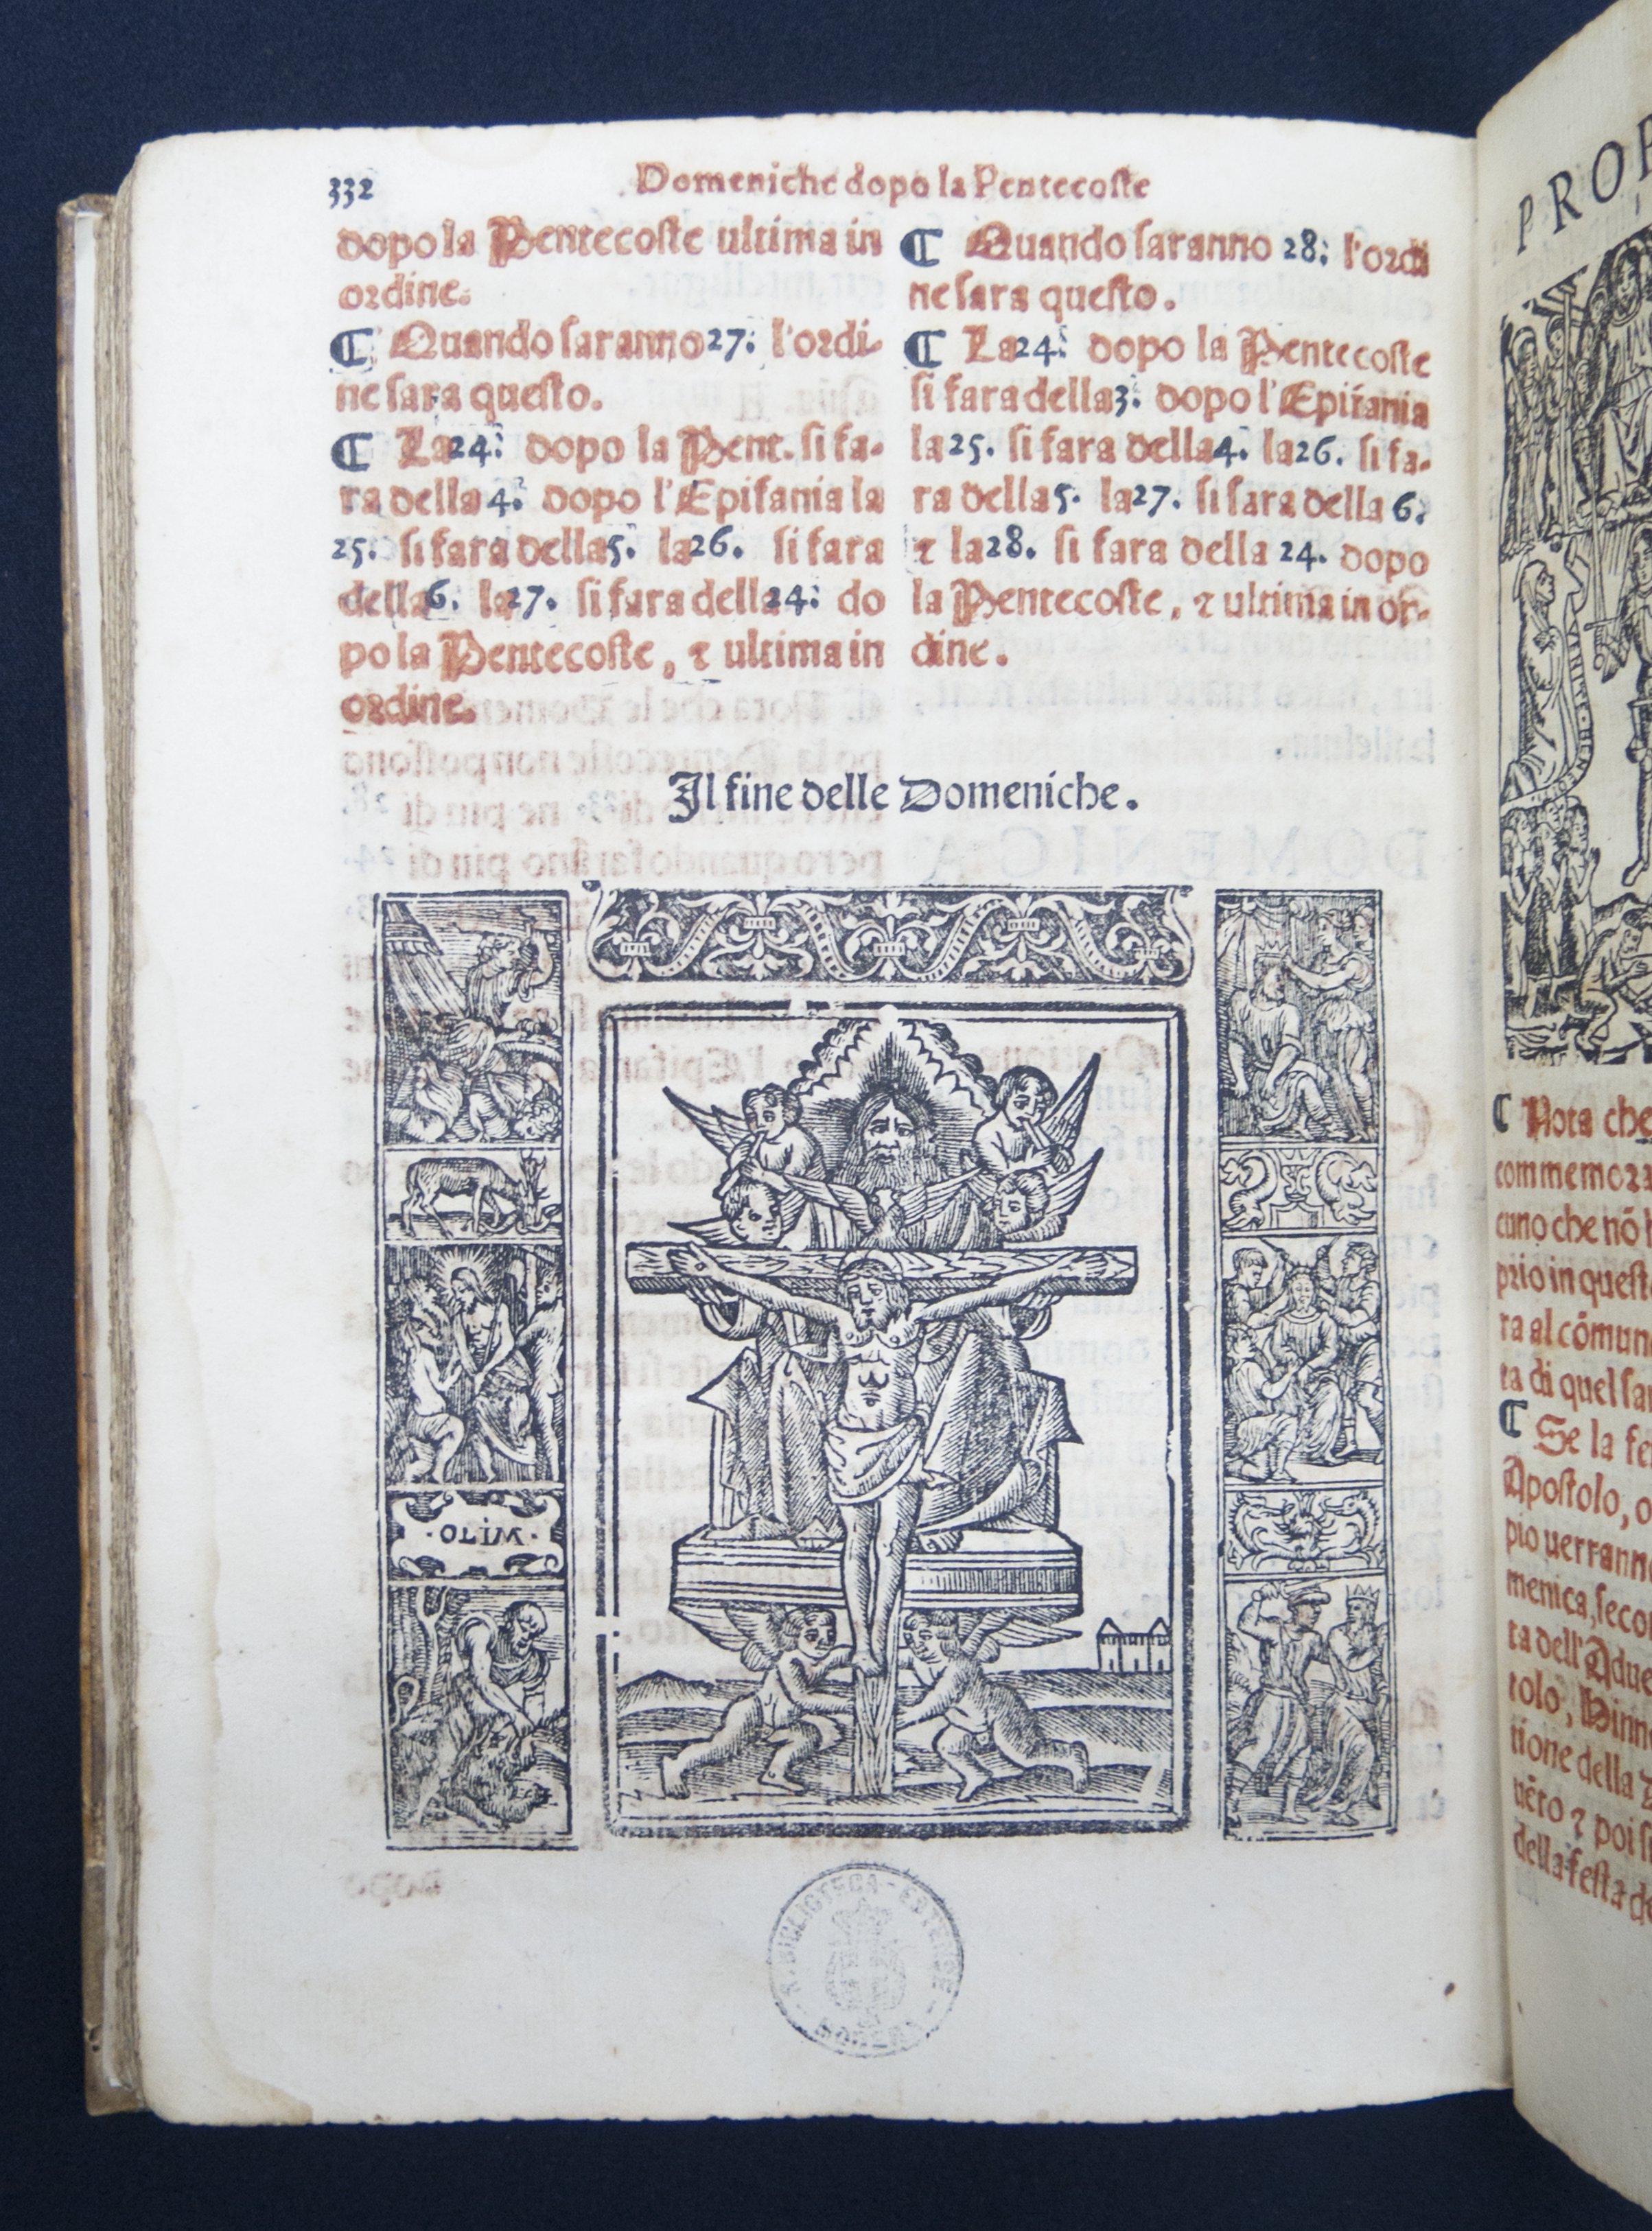 332
Domeniche dopo la Pentecoste
dopo la Pentecoste ultima in
ordine.
¶ Quando saranno 27. l'ordi-
ne sara questo.
¶ La 24. dopo la Pent. si fa-
ra della 4. dopo l'Epifania la
25. si fara della 5. la 26. si fara
della 6. la 27. si fara della 24. do
po la Pentecoste, ⁊ ultima in
ordine.
¶ Quando saranno 28. l'ordi
ne sara questo.
¶ La 24. dopo la Pentecoste
si fara della 3. dopo l'Epifania
la 25. si fara della 4. la 26. si fa-
ra della 5. la 27. si fara della 6.
⁊ la 28. si fara della 24. dopo
la Pentecoste, ⁊ ultima in or-
dine.
Il fine delle Domeniche.
R. BIBLIOTECA - ESTENSE - MODENA
PROP
¶ Nota che
commemora
cuno che nõ
prio in quest
ra al cómun
ta di quel sa
¶ Se la fe
Apostolo, o
pio uerrann
menica, seco
ta dell'Adue
tolo, Hinn
tione della
uẽro ⁊ poi si
della festa de